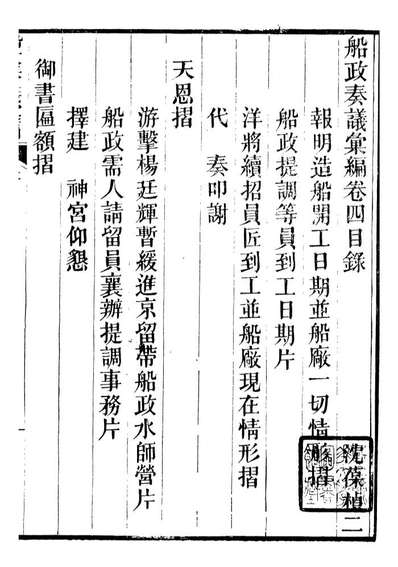 船政奏議彙編卷四目錄
沈葆楨二
報明造船開工日期並船廠一切情形摺
船政提調等員到工日期片
洋將續招員匠到工並船廠現在情形摺
代 奏叩謝
天恩摺
游擊楊廷輝暫緩進京留帶船政水師營片
船政需人請留員襄辦提調事務片
擇建 神宮仰懇
御書匾額摺